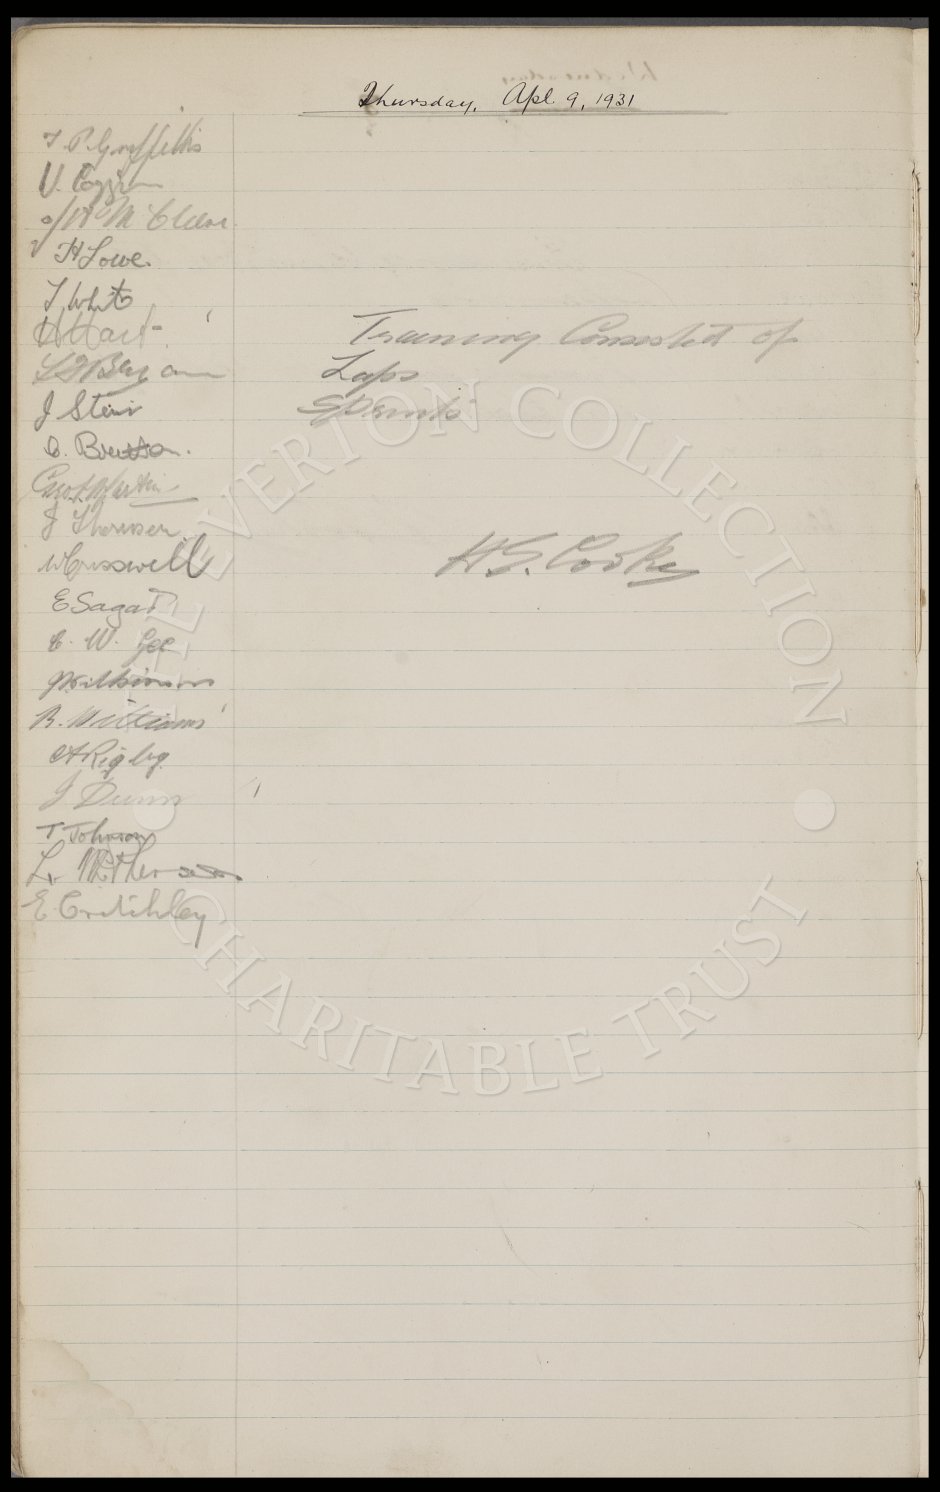 Thursday, Apl. 9, 1931
T. P. Griffiths
V. Coggin
W McClure
H Lowe.
T. White
H Hart
J Stein
C. Britton.
Geo. Martin
J Thomson.
W Cresswell
E Sagar
C. W. Gee
J Wilkinson
R. Williams
A Rigby.
J Dunn
T Johnson
L. McPherson
E. Critchley
Training Consisted of
Laps
Sprints
H. E. Cooke
THE EVERTON COLLECTION
CHARITABLE TRUST